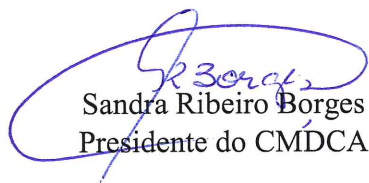 SRBorges
Sandra Ribeiro Borges
Presidente do CMDCA